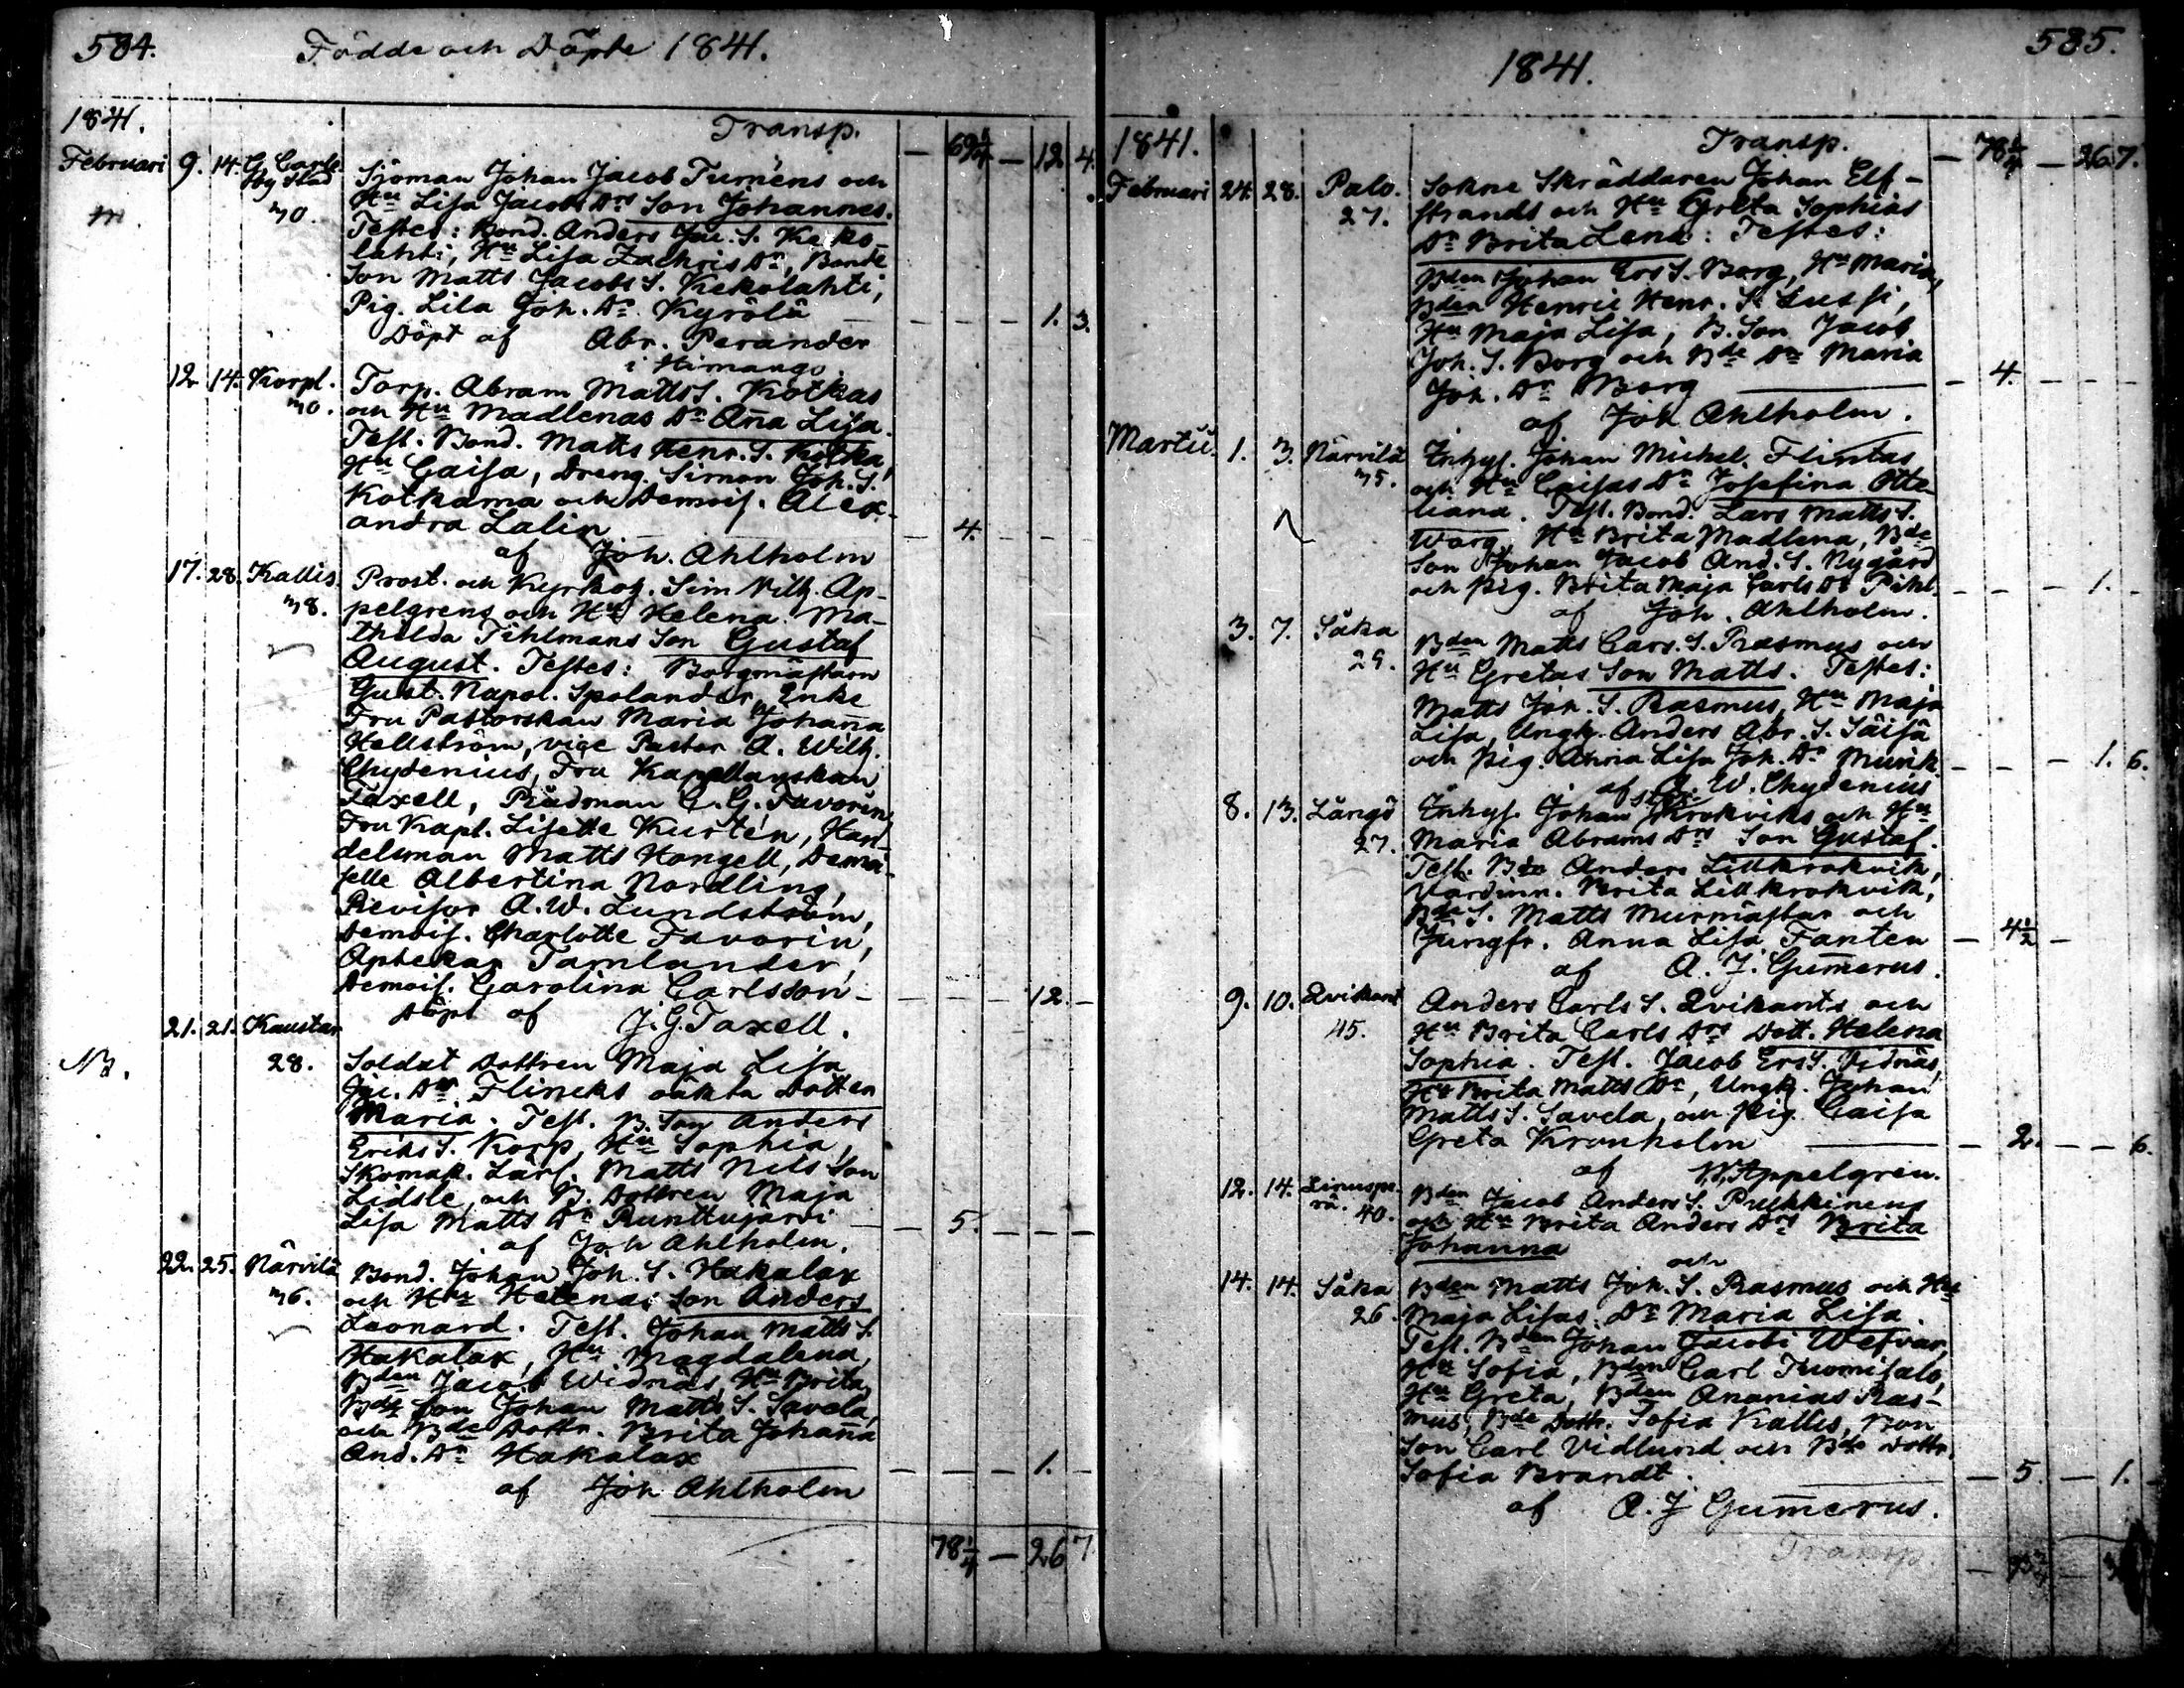 584.
Födde och Döpte 1841.
1841.
Transp. — 69 1/4 — 12 4.
Februari 9. 14. G Carle
by Stad
30.
Sjöman Johan Jacob Turnéns och
Hu Lisa Jacobs Drs Son Johannes.
Testes: Bond. Anders Jac. S. Keko-
lahti, Hu Lisa Zachris Dr, Bonde
Son Matts Jacobs S. Kekolahti,
Pig. Lisa Joh. Dr Kyrölä — — — 1. 3.
Döpt af Abr. Perander
i Himango.
12 14. Korpl.
30.
Torp. Abram Matts S. Kotkas
och Hu Madlenas Dr Ana Lisa.
Test. Bond. Matts Henr. S. Kotka,
Hu Caisa, Dreng. Simon Joh. S.
Kotkama och Demois. Alex-
andra Lalin — 4. — — —
af Joh. Ahlholm
17. 28. Kallis.
38.
Prost. och Kyrkoh. Sim Vilh. Ap-
pelgrens och Hus Helena Ma-
thilda Tihlmans Son Gustaf
August. Testes: Borgmästarn
Gust. Napol. Spolander, Enke
Fru Pastorskan Maria Johana
Hellström, vice Pastor A. Wilh.
Chydenius, Fru Kapellanskan
Taxell, Rådman C. G. Favorin,
Fru Kapl. Lisette Kurtén, Han-
delsman Matts Hongell, Demoi-
selle Albertina Nordling,
Revisor A. W. Lundström,
Demois. Charlotte Favorin,
Aptekar Tamlander,
Demois. Carolina Carlsson — — — 12. —
Döpt af J. G. Taxell.
21. 21. Kaustar
28.
NB.
Soldat Dottren Maja Lisa
Jac. Dr Flincks oäkta Dotter
Maria. Test. B. Son Anders
Eriks S. Korp, Hu Sophia,
Skomak. Lärl. Matts Nils Son
Lidsle, och B. Dottren Maja
Lisa Matts Dr Runttujärvi — 5. — — —
af Joh Ahlholm.
22. 25. Närvilä
36.
Bond. Johan Joh. S. Hakalax
och Hu Helenas Son Anders
Leonard. Test. Johan Matts S.
Hakalax, Hu Magdalena,
Bden Jacob Widnäs, Hu Brita,
Bde Son Johan Matts S. Savela,
och Bde Dottr. Brita Johana
And. Dr Hakalax — — — 1. —
af Joh Ahlholm
78 1/4 — 26 7.
585.
1841.
1841.
Transp. — 78 1/4 — 26 7.
Februari 24. 28. Palo.
27.
Sokne Skräddaren Johan Elf-
strands och Hu Greta Sophias
Dr Brita Lena: Testes:
Bden Johan Ers S. Borg, Hu Maria,
Bden Henric Henr. S. Sussi,
Hu Maja Lisa, B. Son Jacob
Joh. S. Borg och Bde Dr Maria
Joh. Dr Borg — 4. — — —
af Joh Ahlholm.
Martii. 1. 3. Närvilä
35.
Inhys. Johan Michel. Flintas
och Hu Caisas Dr Josefina Otte-
liana. Test. Bond. Lars Matts S.
Warg, Hu Brita Madlena, Bde
Son Johan Jacob And. S. Nygård
och Pig. Brita Maja Carls Dr Pihl. — — — 1. —
af Joh. Ahlholm.
3. 7. Såka
29.
Bden Matts Cars. S. Rasmus och
Hu Gretas Son Matts. Testes:
Matts Joh. S. Rasmus, Hu Maja
Lisa, Ungk. Anders Abr. S. Säisä
och Pig. Anna Lisa Joh. Dr Munk. — — — 1. 6.
af A. W. Chydenius
8. 13. Långö
27.
Inhys. Johan Krokviks och Hu
Maria Abrams Drs Son Gustaf.
Test. Bde Anders Lillkrokvik,
Värdinn. Brita Lillkrokvik,
Bde S. Matts Murmästar och
Jungfr. Anna Lisa Fanten — 4 1/2 —
af A. J. Gumerus.
9. 10. Qvikant
45.
Anders Carls S. Qvikants och
Hu Brita Carls Drs Dott. Helena
Sophia. Test. Jacob Ers S. Widnäs,
Hu Brita Matts Dr, Ungk. Johan
Matts S. Savela, och Pig. Caisa
Greta Kronholm — 2. — — 6.
af W. Appelgren.
12. 14. Linuspe-
rä. 40.
Bden Jacob Anders S. Pulkkinens
och Hu Brita Anders Drs Brita
Johanna
och
14. 14. Såka
26.
Bden Matts Joh. S. Rasmus och Hu
Maja Lisas Dr Maria Lisa.
Test. Bden Johan Jacobi Wefvar,
Hu Sofia, Bden Carl Tuomisalo,
Hu Greta, Bden Ananias Ras-
mus, Bde Dottr. Sofia Kallis, Bon
Son Carl Vidlund och Bde Dottr.
Sofia Brandt. — 5. — 1. —
af A. J Gumerus.
Transp.